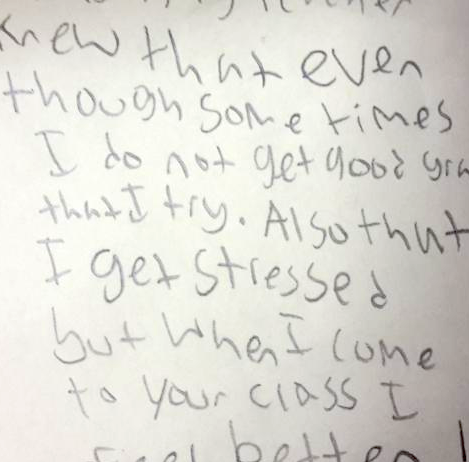 my teacher
knew that even
though sometimes
I do not get good gra
that I try. Also that
I get stressed
but when I come
to your class I
feel better